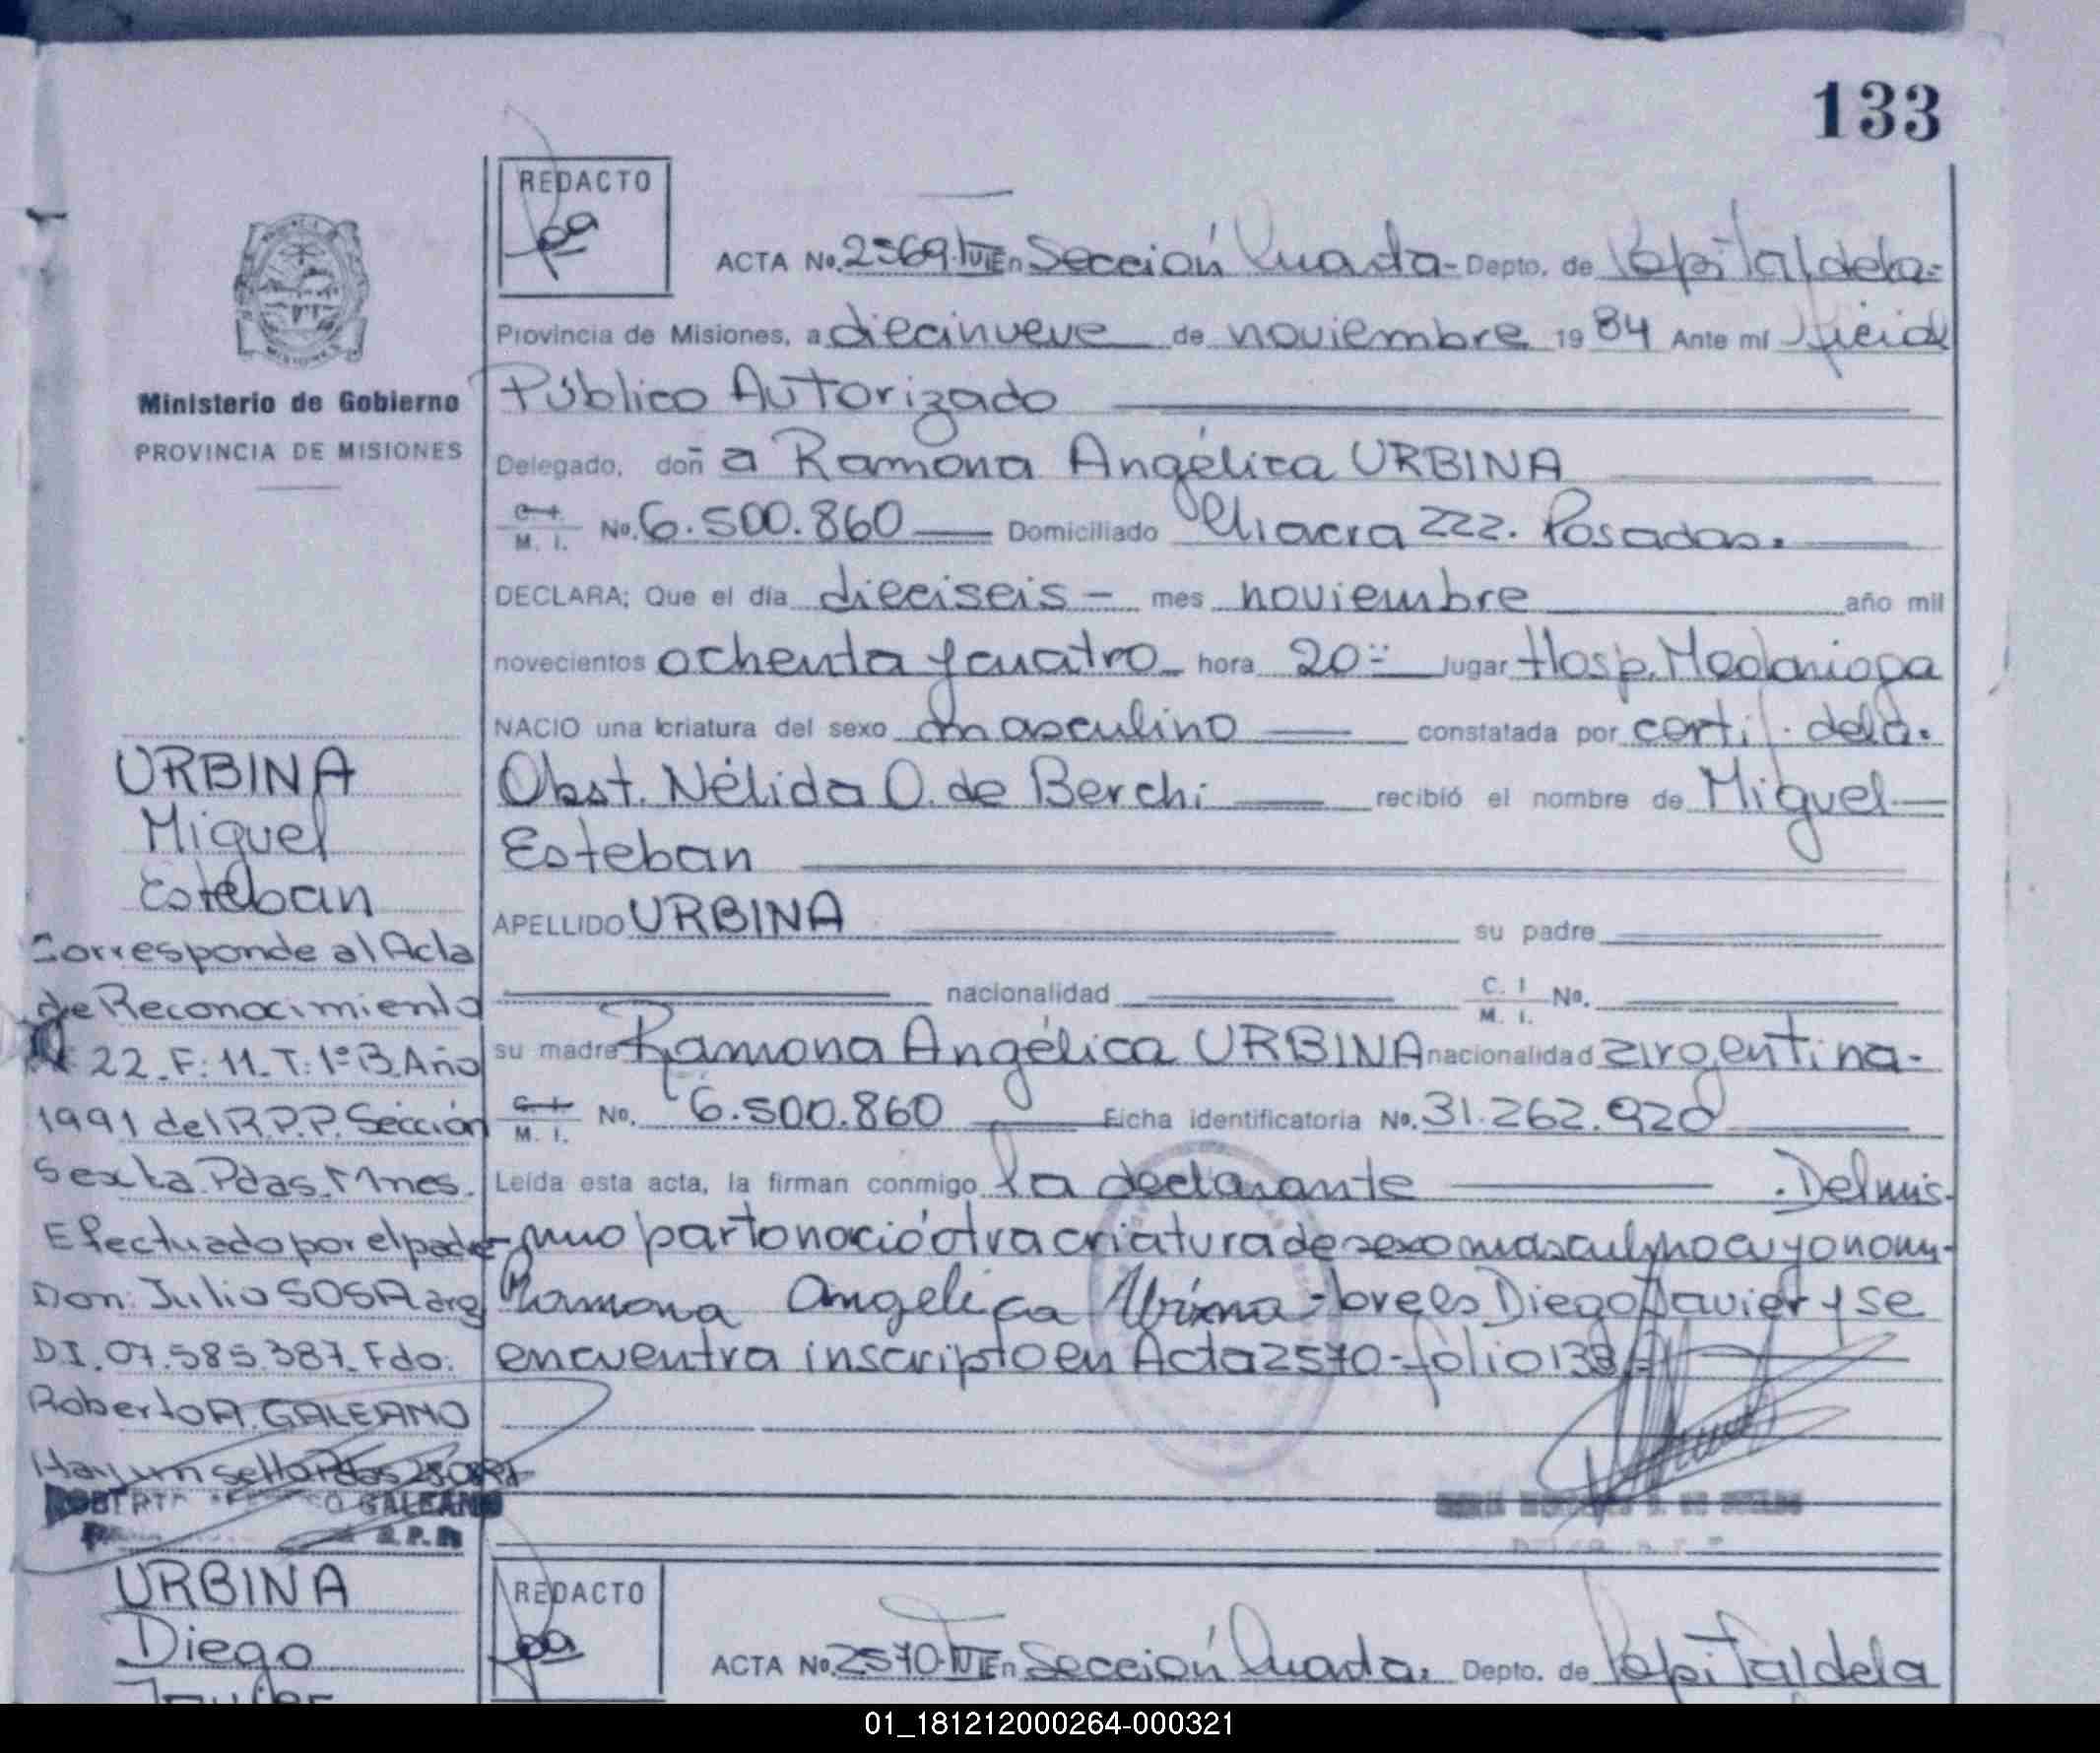 133
REDACTO
ACTA No. 2569. IV En Sección Cuarta - Depto. de Capital dela -
Provincia de Misiones, a diecinueve de noviembre 19 84 Ante mí Oficial
Público Autorizado
Delegado, doñ a Ramona Angélica URBINA
C. I. M. I. No. 6.500.860 Domiciliado Chacra 222. Posadas.
DECLARA; Que el día dieciseis - mes noviembre año mil
novecientos ochenta y cuatro hora 20 lugar Hosp. Madariaga
NACIO una criatura del sexo masculino constatada por certif. dela.
Obst. Nélida O. de Berchi recibió el nombre de Miguel
Esteban
APELLIDO URBINA su padre
nacionalidad C. I M. I. No.
su madre Ramona Angélica URBINA nacionalidad argentina -
C. I. M. I. No. 6.500.860 Ficha identificatoria No. 31.262.920
Leída esta acta, la firman conmigo la declarante . Del mis-
mo parto nació otra criatura de sexo masculino cuyo nom-
Ramona Angelica Urbina - bre es Diego Javier y se
encuentra inscripto en Acta 2570 - folio 133
Ministerio de Gobierno
PROVINCIA DE MISIONES
URBINA
Miguel
Esteban
Corresponde al Acta
de Reconocimiento
22. F: 11. T: 1º B. Año
1991 del R.P.P. Sección
Sexta. Pdas. Mnes.
Efectuado por el padre
Don: Julio SOSA arg
D.I. 07.585.387. Fdo:
Roberto A. GALEANO
Hay un sello Pdas
ROBERTO GALEANO
R.P.P.
URBINA
Diego
Javier
REDACTO
ACTA No. 2570. IV En Sección Cuarta. Depto. de Capital dela
01_181212000264-000321